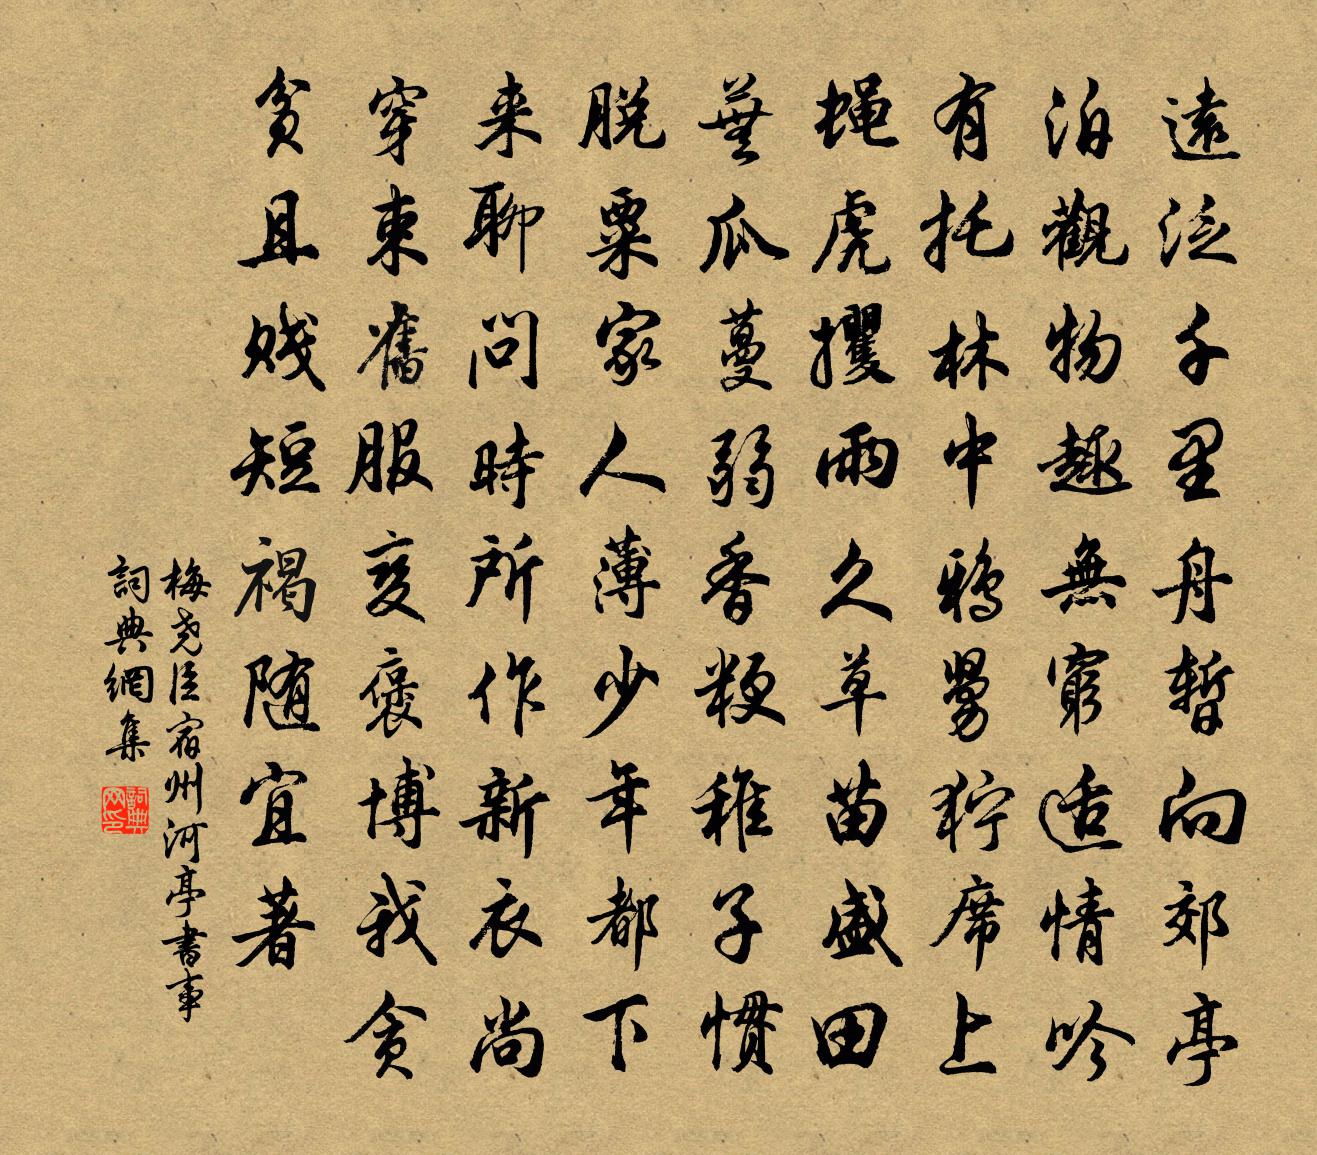 遠泛千里舟暫向郊亭
泊觀物趣無窮適情吟
有托林中鴉舅狞席上
蝇虎攫雨久草苗盛田
蕪瓜蔓弱香粳稚子慣
脱粟家人薄少年都下
来聊問時所作新衣尚
穿束舊服变褒博我貧
貧且賤短褐随宜著
梅尧臣宿州河亭書事
詞典網集
詞典网印